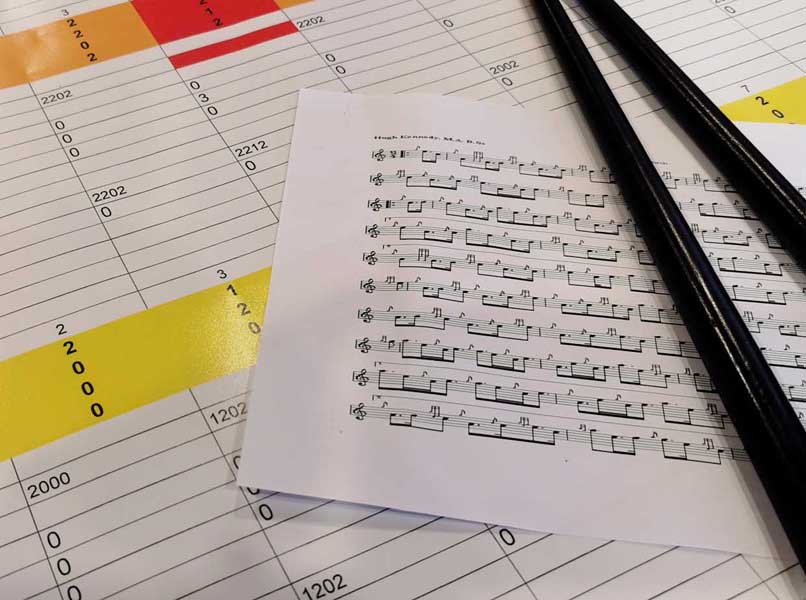 3
2
2
0
2
2202
0
0
0
2202
0
2
1
2
0
3
0
2212
0
2202
0
0
0
2002
0
0
7
2
0
Hugh Kennedy, M.A. B.Sc
2
2
0
0
0
3
1
2
0
2000
0
0
0
1202
0
0
1202
0